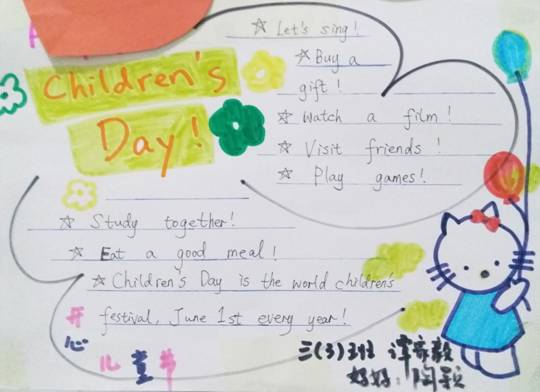 Children's
Day!
☆ Let's sing!
☆ Buy a
gift!
☆ Watch a film!
☆ Visit friends!
☆ Play games!
☆ Study together!
☆ Eat a good meal!
☆ Children's Day is the world children's
festival, June 1st every year!
开
心
儿
童
节
三(3)班